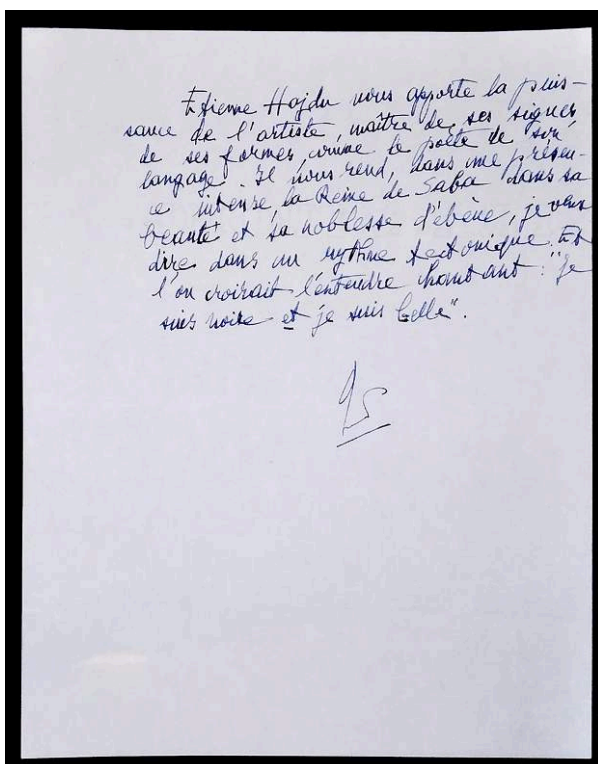 Etienne Hajdu nous apporte la puis-
sance de l'artiste, maître de ses signes,
de ses formes, comme le poète de son
langage. Il nous rend, dans une présen-
ce intense, la Reine de Saba dans sa
beauté et sa noblesse d'ébène, je veux
dire dans un rythme tectonique. Et
l'on croirait l'entendre chantant : "Je
suis noire et je suis belle".